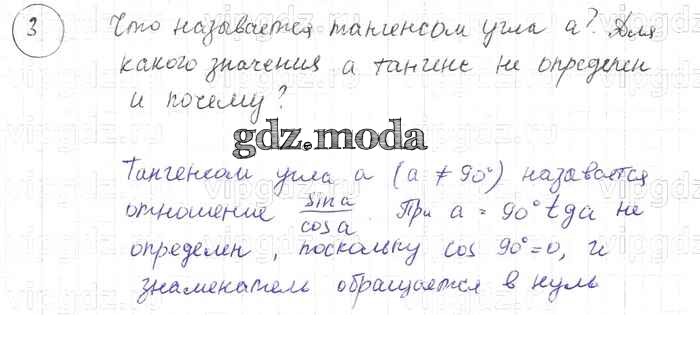 3 Что называется тангенсом угла a? Для
какого значения a тангенс не определен
и почему?
gdz.moda
Тангенсом угла a (a ≠ 90°) называется
отношение sin a / cos a. При a = 90° tg a не
определен, поскольку cos 90° = 0, и
знаменатель обращается в нуль